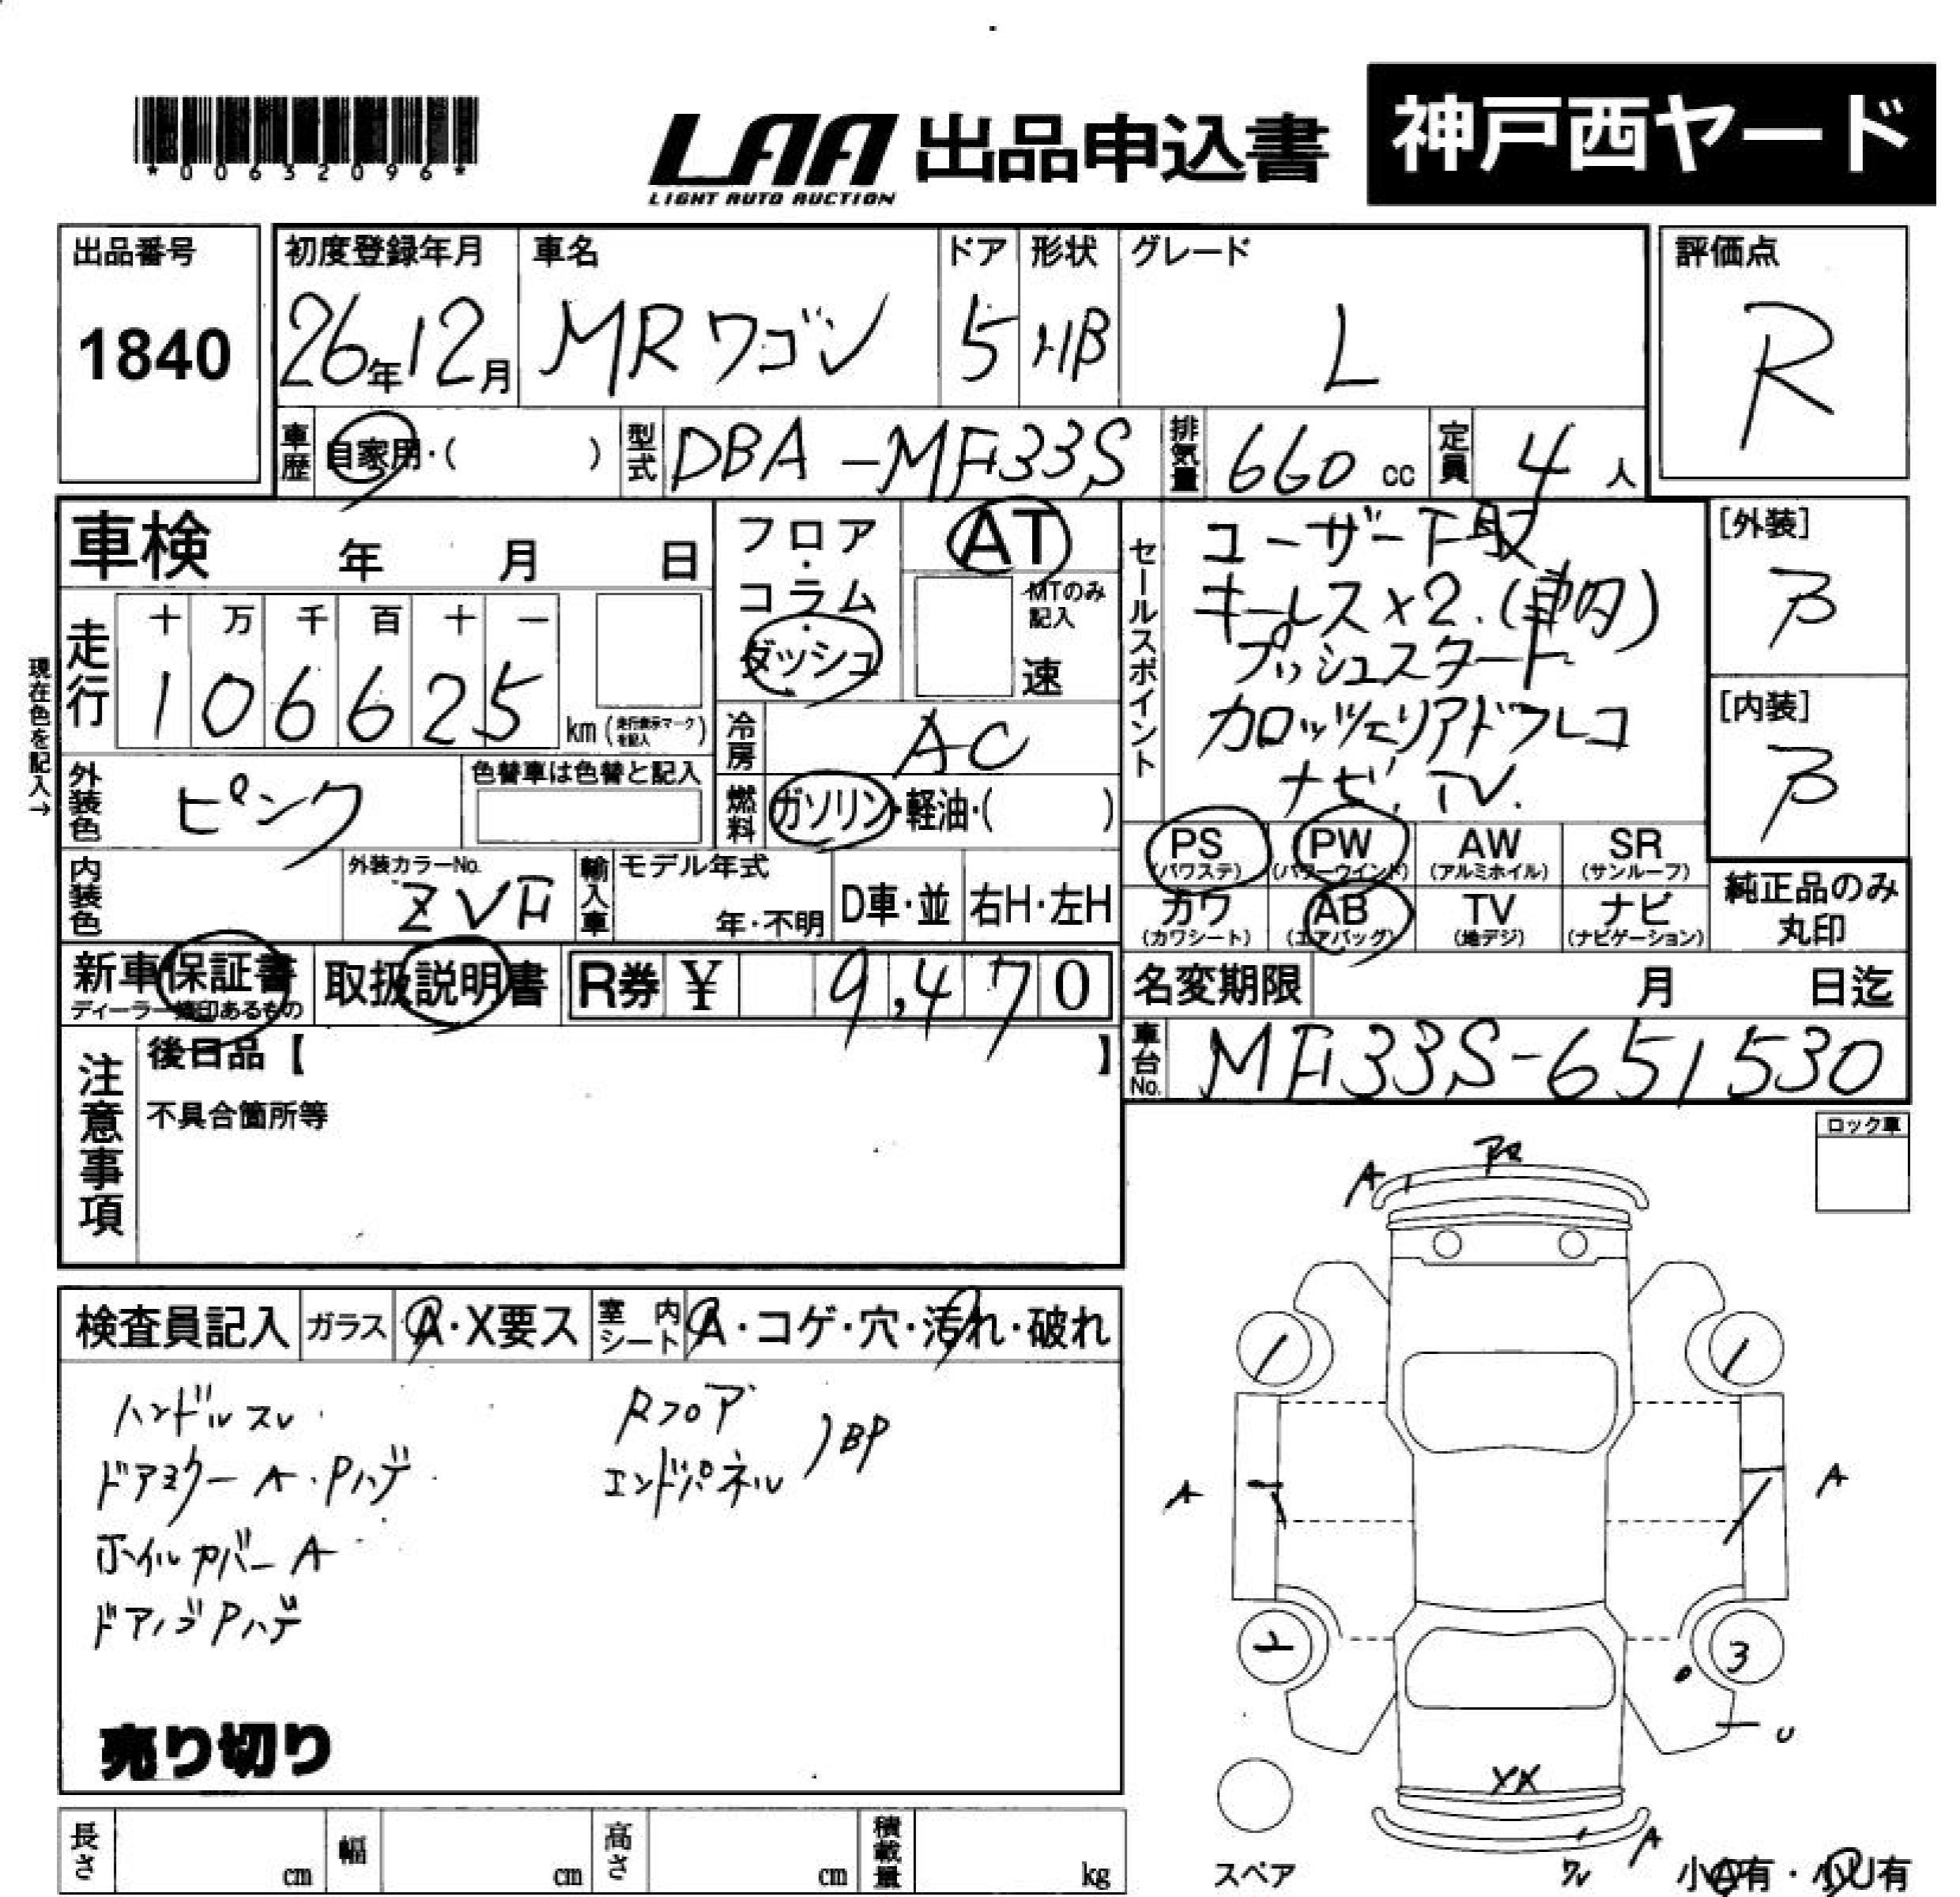 *00632096*
LAA 出品申込書
LIGHT AUTO AUCTION
神戸西ヤード
出品番号
1840
初度登録年月
26年12月
車名
MRワゴン
ドア
5
形状
HB
グレード
L
評価点
R
車歴 自家用・( )
型式 DBA-MF33S
排気量 660 cc
定員 4人
車検 年 月 日
フロア・コラム・ダッシュ
AT
MTのみ記入
速
セールスポイント
ユーザー下取
キーレス×2.(車内)
プッシュスタート
カロッツェリアドラレコ
ナビ, TV.
[外装]
B
[内装]
B
現在色を記入→
走行
十 万 千 百 十 一
1 0 6 6 2 5
km (走行表示マークを記入)
冷房 AC
外装色 ピンク
色替車は色替と記入
燃料 ガソリン・軽油・( )
PS (パワステ)
PW (パワーウインド)
AW (アルミホイル)
SR (サンルーフ)
カワ (カワシート)
AB (エアバッグ)
TV (地デジ)
ナビ (ナビゲーション)
純正品のみ
丸印
内装色
外装カラーNo.
ZVF
輸入車
モデル年式
年・不明
D車・並
右H・左H
新車保証書
ディーラー捺印あるもの
取扱説明書
R券 ¥ 9,470
名変期限 月 日迄
車台No. MF33S-651530
注意事項
後日品【 】
不具合箇所等
ロック車
検査員記入
ガラス A・X要ス
室内シート A・コゲ・穴・汚れ・破れ
ハンドルスレ
ドアミラー A・Pハゲ
ホイルカバー A
ドアノブPハゲ
Rフロア
エンドパネル
)BP
売り切り
A
A
A
3
U
XX
A
スペア
ワレ
小A有・小U有
長さ cm
幅 cm
高さ cm
積載量 kg